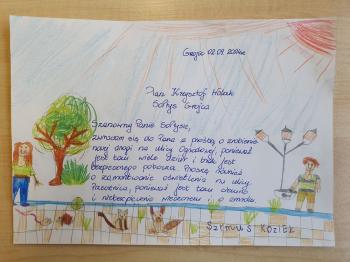 Grojec 02.09.2014r.
Pan Krzysztof Wolak
Sołtys Grojca
Szanowny Panie Sołtysie,
zwracam się do Pana z prośbą o zrobienie
nowej drogi na ulicy Ogrodowej, ponieważ
jest tam wiele dziur i brak jest
bezpiecznego pobocza. Proszę również
o zamontowanie oświetlenia na ulicy
ponieważ jest tam ciemno
i niebezpiecznie wieczorem i o
SZYMUŚ KOZIEŁ